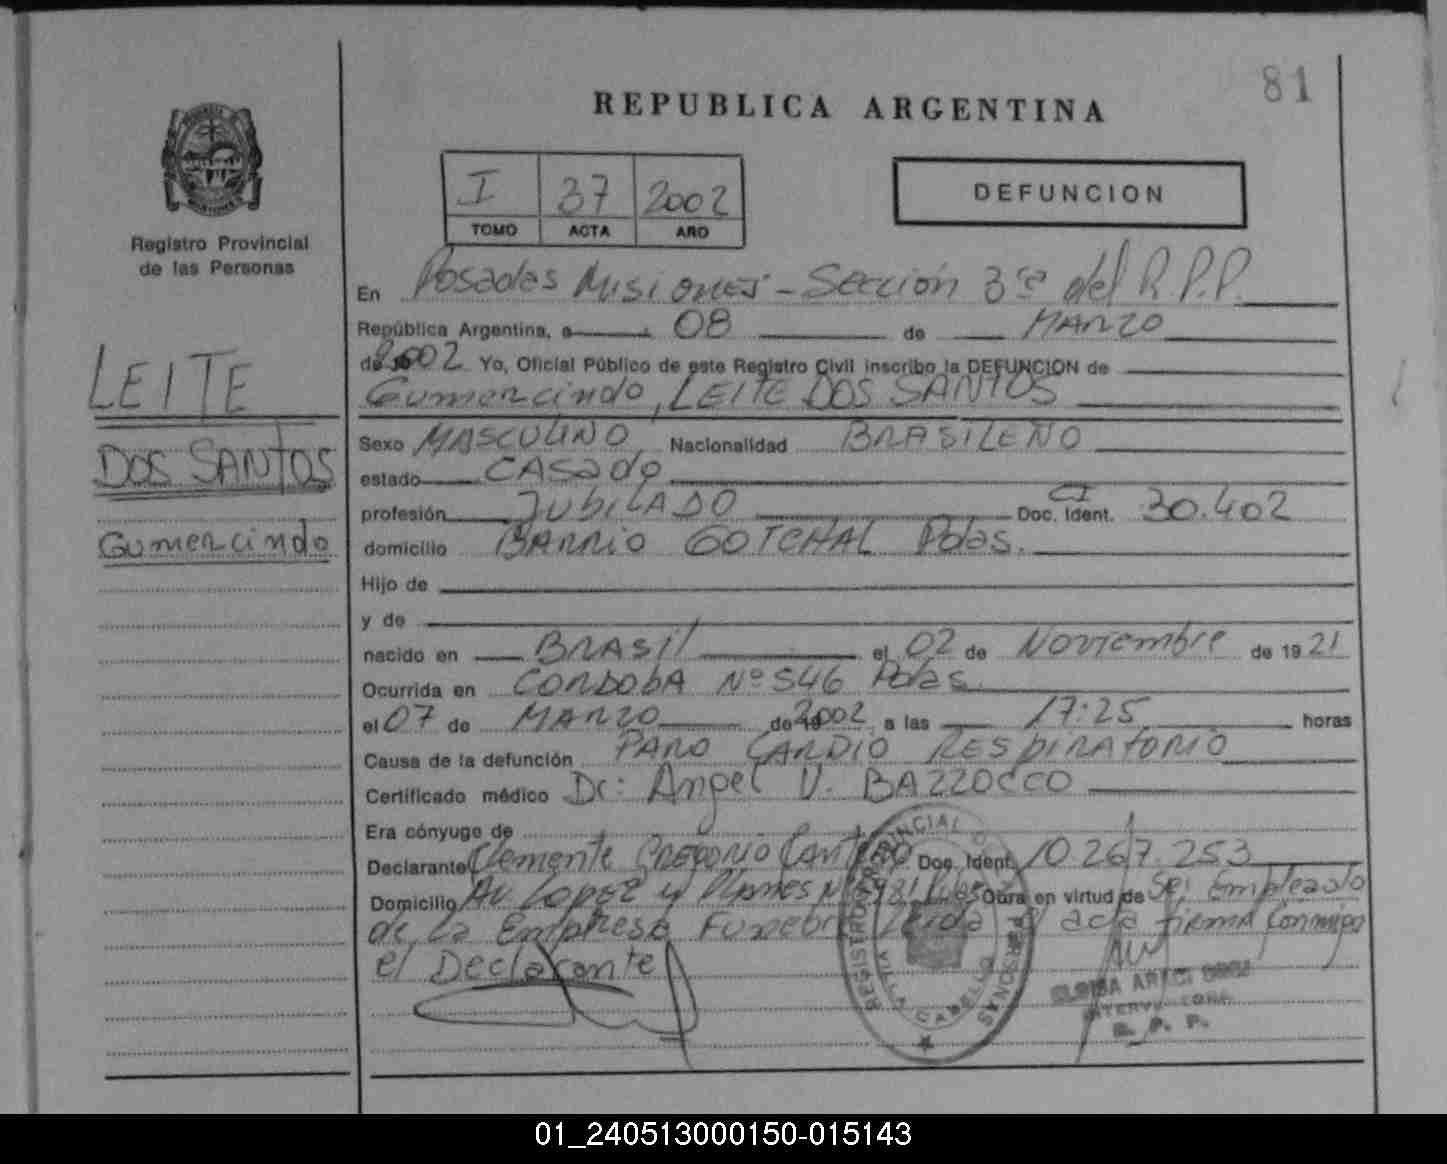 81
REPUBLICA ARGENTINA
Registro Provincial
de las Personas
I 37 2002
TOMO ACTA AÑO
DEFUNCION
LEITE
DOS SANTOS
Gumercindo
En Posadas Misiones - Sección 3ra del R.P.P.
República Argentina, a 08 de MARZO
de 2002 Yo, Oficial Público de este Registro Civil inscribo la DEFUNCION de
Gumercindo, LEITE DOS SANTOS
Sexo MASCULINO Nacionalidad BRASILEÑO
estado CASADO
profesión JUBILADO Doc. Ident. CI 30.402
domicilio BARRIO GOTCHAL Pdas.
Hijo de
y de
nacido en BRASIL el 02 de Noviembre de 1921
Ocurrida en CORDOBA Nº 546 Pdas.
el 07 de MARZO de 2002 a las 17:25 horas
Causa de la defunción PARO CARDIO RESPIRATORIO
Certificado médico Dr: Angel V. BAZZOCCO
Era cónyuge de
Declarante Clemente GREGORIO Doc. Ident. 10.267.253
Domicilio Av Lopez y Planes Obra en virtud de Ser Empleado
de La Empresa Funebre Leida el acta firma conmigo
el Declarante
REGISTRO PROVINCIAL DE PERSONAS
VILLA CABELLO
R. P. P.
01_240513000150-015143